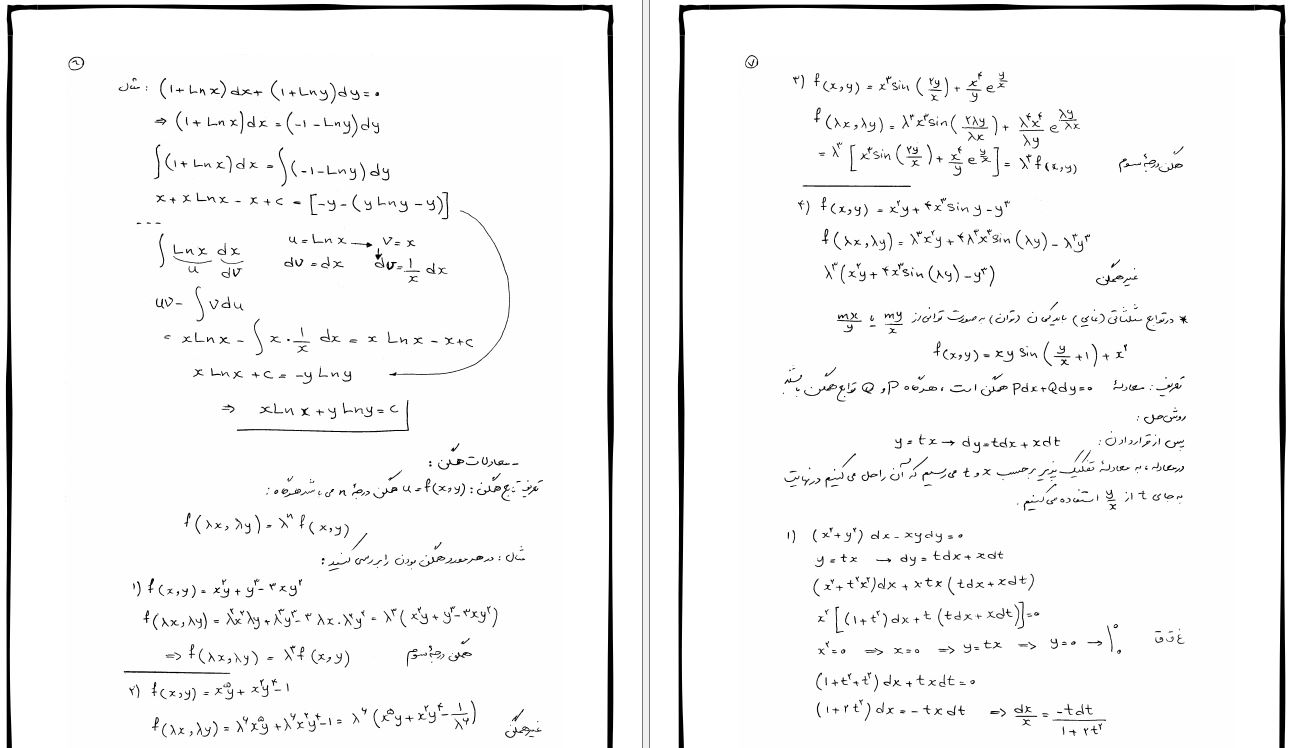 ۶
مثال : (1+Lnx)dx+(1+Lny)dy=۰
⇒ (1+Lnx)dx=(-1-Lny)dy
∫(1+Lnx)dx=∫(-1-Lny)dy
x+xLnx-x+c=[-y-(yLny-y)]
∫ Lnx dx    u=Lnx → v=x
u dv    dv=dx    dv=1/x dx
uv-∫vdu
= xLnx-∫x·1/x dx = x Lnx-x+c
xLnx+c=-yLny
⇒ xLnx+yLny=c
- معادلات همگن :
تعریف تابع همگن : u=f(x,y) همگن درجهٔ n می باشد هرگاه :
f(λx,λy)=λⁿf(x,y)
مثال : در هر مورد همگن بودن را بررسی کنید :
۱) f(x,y)=x^۲y+y^۳-۳xy^۲
f(λx,λy)=λ^۲x^۲λy+λ^۳y^۳-۳λx.λ^۲y^۲=λ^۳(x^۲y+y^۳-۳xy^۲)
⇒ f(λx,λy)=λ^۳f(x,y)    همگن درجهٔ سوم
۲) f(x,y)=x^۵y+x^۲y^۴-1
f(λx,λy)=λ^۶x^۵y+λ^۶x^۲y^۴-1=λ^۶(x^۵y+x^۲y^۴-1/λ^۶)    غیرهمگن
۷
۳) f(x,y)=x^۳sin(۲y/x)+x^۴/y e^(y/x)
f(λx,λy)=λ^۳x^۳sin(۲λy/λx)+λ^۴x^۴/λy e^(λy/λx)
=λ^۳[x^۳sin(۲y/x)+x^۴/y e^(y/x)]=λ^۳f(x,y)    همگن درجهٔ سوم
۴) f(x,y)=x^۲y+۴x^۳sin y-y^۳
f(λx,λy)=λ^۳x^۲y+۴λ^۳x^۳sin(λy)-λ^۳y^۳
λ^۳(x^۲y+۴x^۳sin(λy)-y^۳)    غیرهمگن
* در توابع مثلثاتی (نمایی) باید کمان (توان) به صورت توانی از my/x یا mx/y
f(x,y)=xy sin(y/x+1)+x^۲
تعریف : معادلهٔ Pdx+Qdy=۰ همگن است ، هرگاه P و Q توابع همگن باشند.
روش حل :
پس از قرار دادن :    y=tx → dy=tdx+xdt
در معادله ، به معادلهٔ تفکیک پذیر برحسب x و t می رسیم که آن را حل می کنیم و در نهایت
به جای t از y/x استفاده می کنیم .
۱) (x^۲+y^۲)dx-xydy=۰
y=tx → dy=tdx+xdt
(x^۲+t^۲x^۲)dx+xtx(tdx+xdt)
x^۲[(1+t^۲)dx+t(tdx+xdt)]=۰
x^۲=۰ ⇒ x=۰ ⇒ y=tx ⇒ y=۰ → |۰ ۰    غ ق ق
(1+t^۲+t^۲)dx+txdt=۰
(1+۲t^۲)dx=-txdt ⇒ dx/x=-tdt/1+۲t^۲